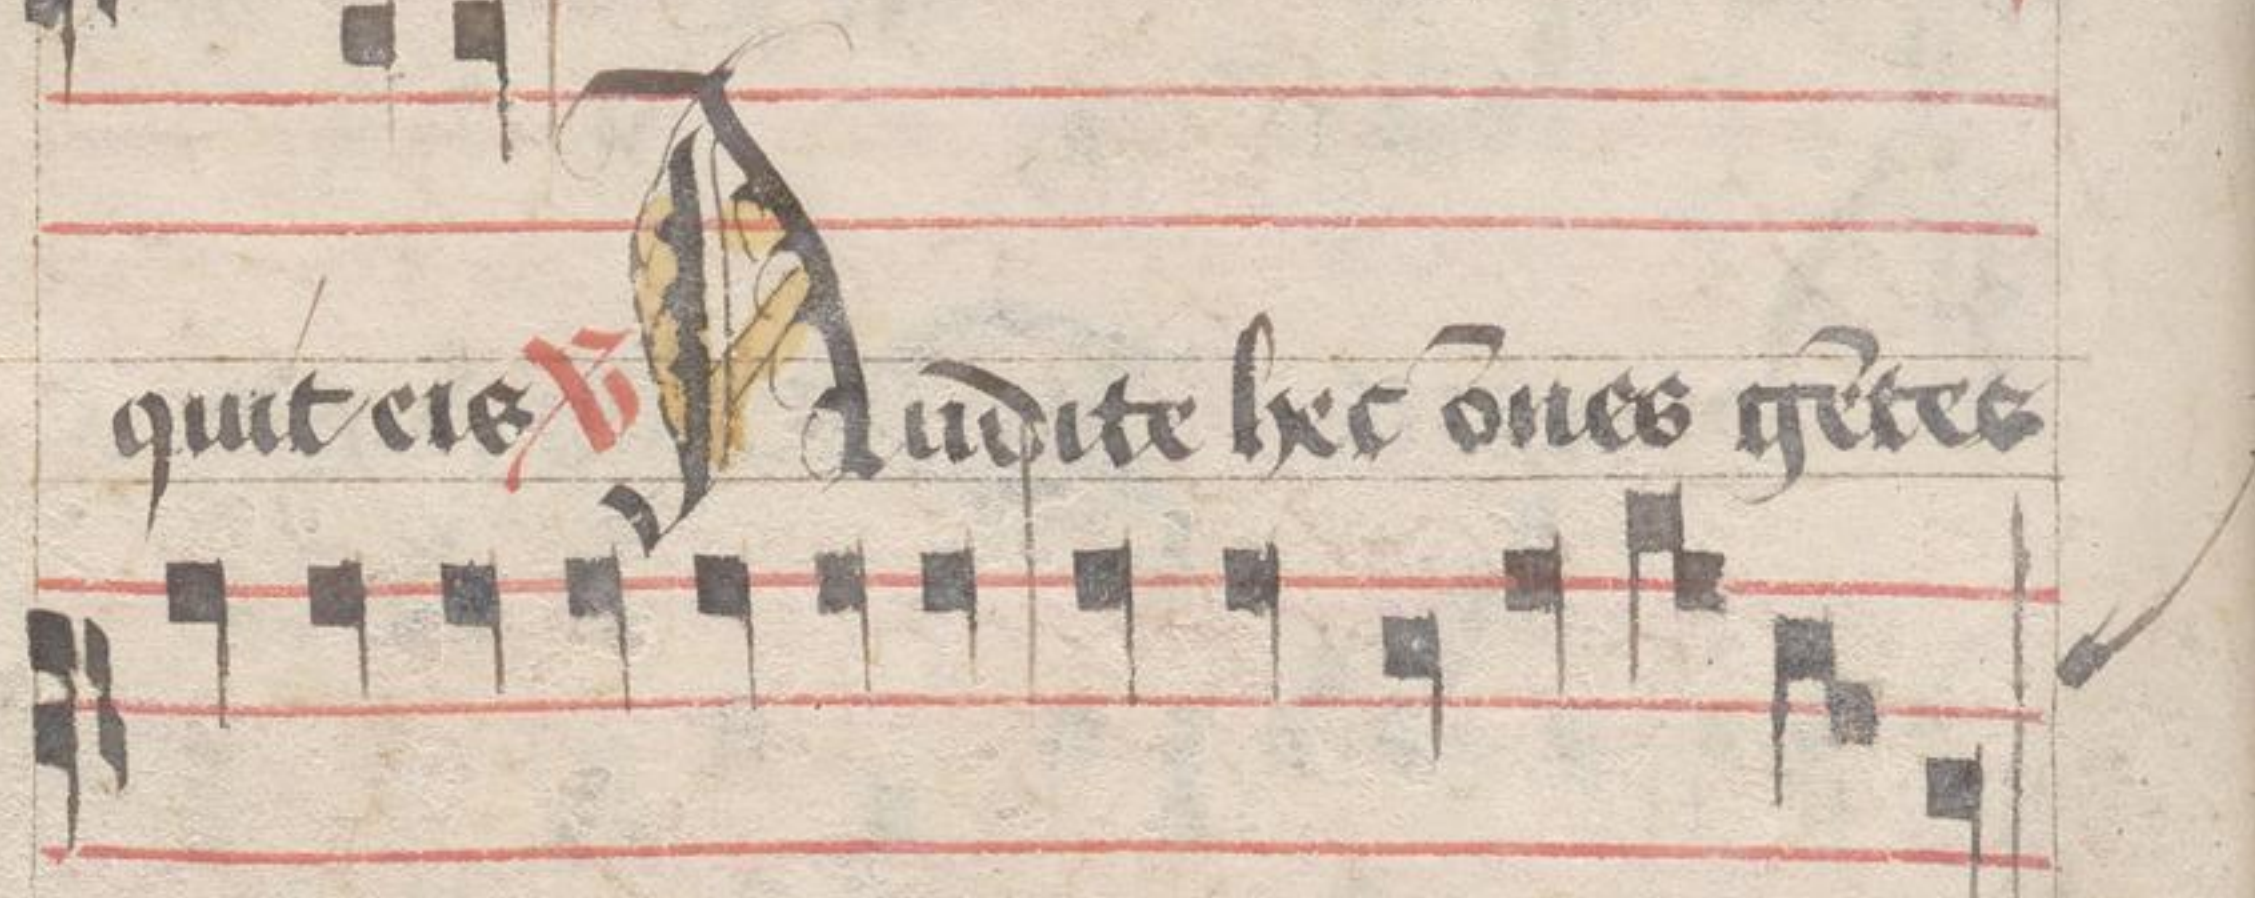 quit eis ℣ Audite hec o̅nes ge̅tes